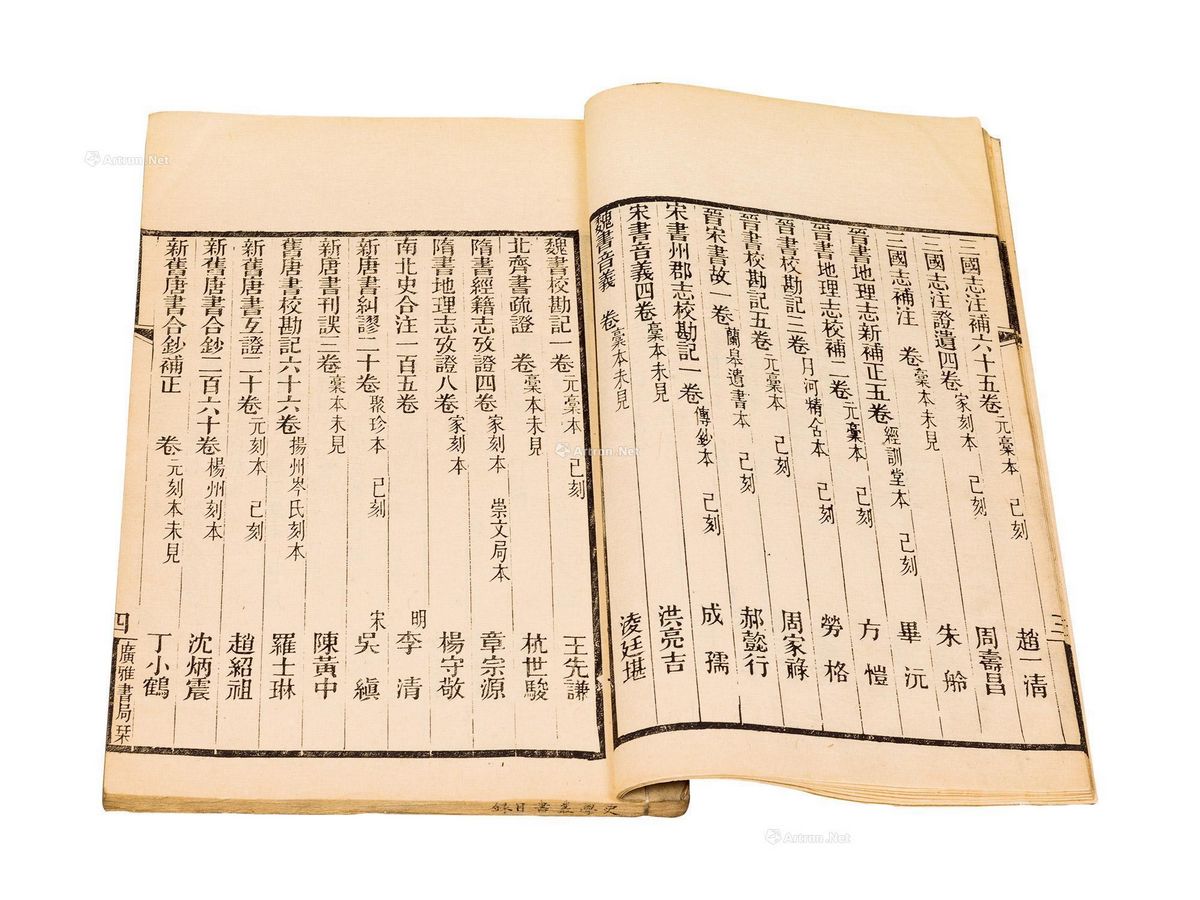 三國志注補六十五卷 元稾本 已刻 趙一清
三國志注證遺四卷 家刻本 已刻 周壽昌
三國志補注 卷 稾本未見 朱舲
晉書地理志新補正五卷 經訓堂本 已刻 畢沅
晉書地理志校補二卷 元稾本 已刻 方愷
晉書校勘記三卷 月河精舍本 已刻 勞格
晉書校勘記五卷 元稾本 已刻 周家祿
晉宋書故一卷 蘭皋遺書本 已刻 郝懿行
宋書州郡志校勘記一卷 傳鈔本 已刻 成孺
宋書音義四卷 稾本未見 洪亮吉
魏書音義 卷 稾本未見 凌廷堪
三
魏書校勘記一卷 元稾本 已刻 王先謙
北齊書疏證 卷 稾本未見 杭世駿
隋書經籍志攷證四卷 家刻本 崇文局本 章宗源
隋書地理志攷證八卷 家刻本 楊守敬
南北史合注一百五卷 明 李清
新唐書糾謬二十卷 聚珍本 已刻 宋 吳縝
新唐書刊誤三卷 稾本未見 陳黃中
舊唐書校勘記六十六卷 揚州岑氏刻本 羅士琳
新舊唐書互證二十卷 元刻本 已刻 趙紹祖
新舊唐書合鈔二百六十卷 楊州刻本 沈炳震
新舊唐書合鈔補正 卷 元刻本未見 丁小鶴
四
廣雅書局栞
史學叢書目錄
Artron.Net
Artron.Net
Artron.Net